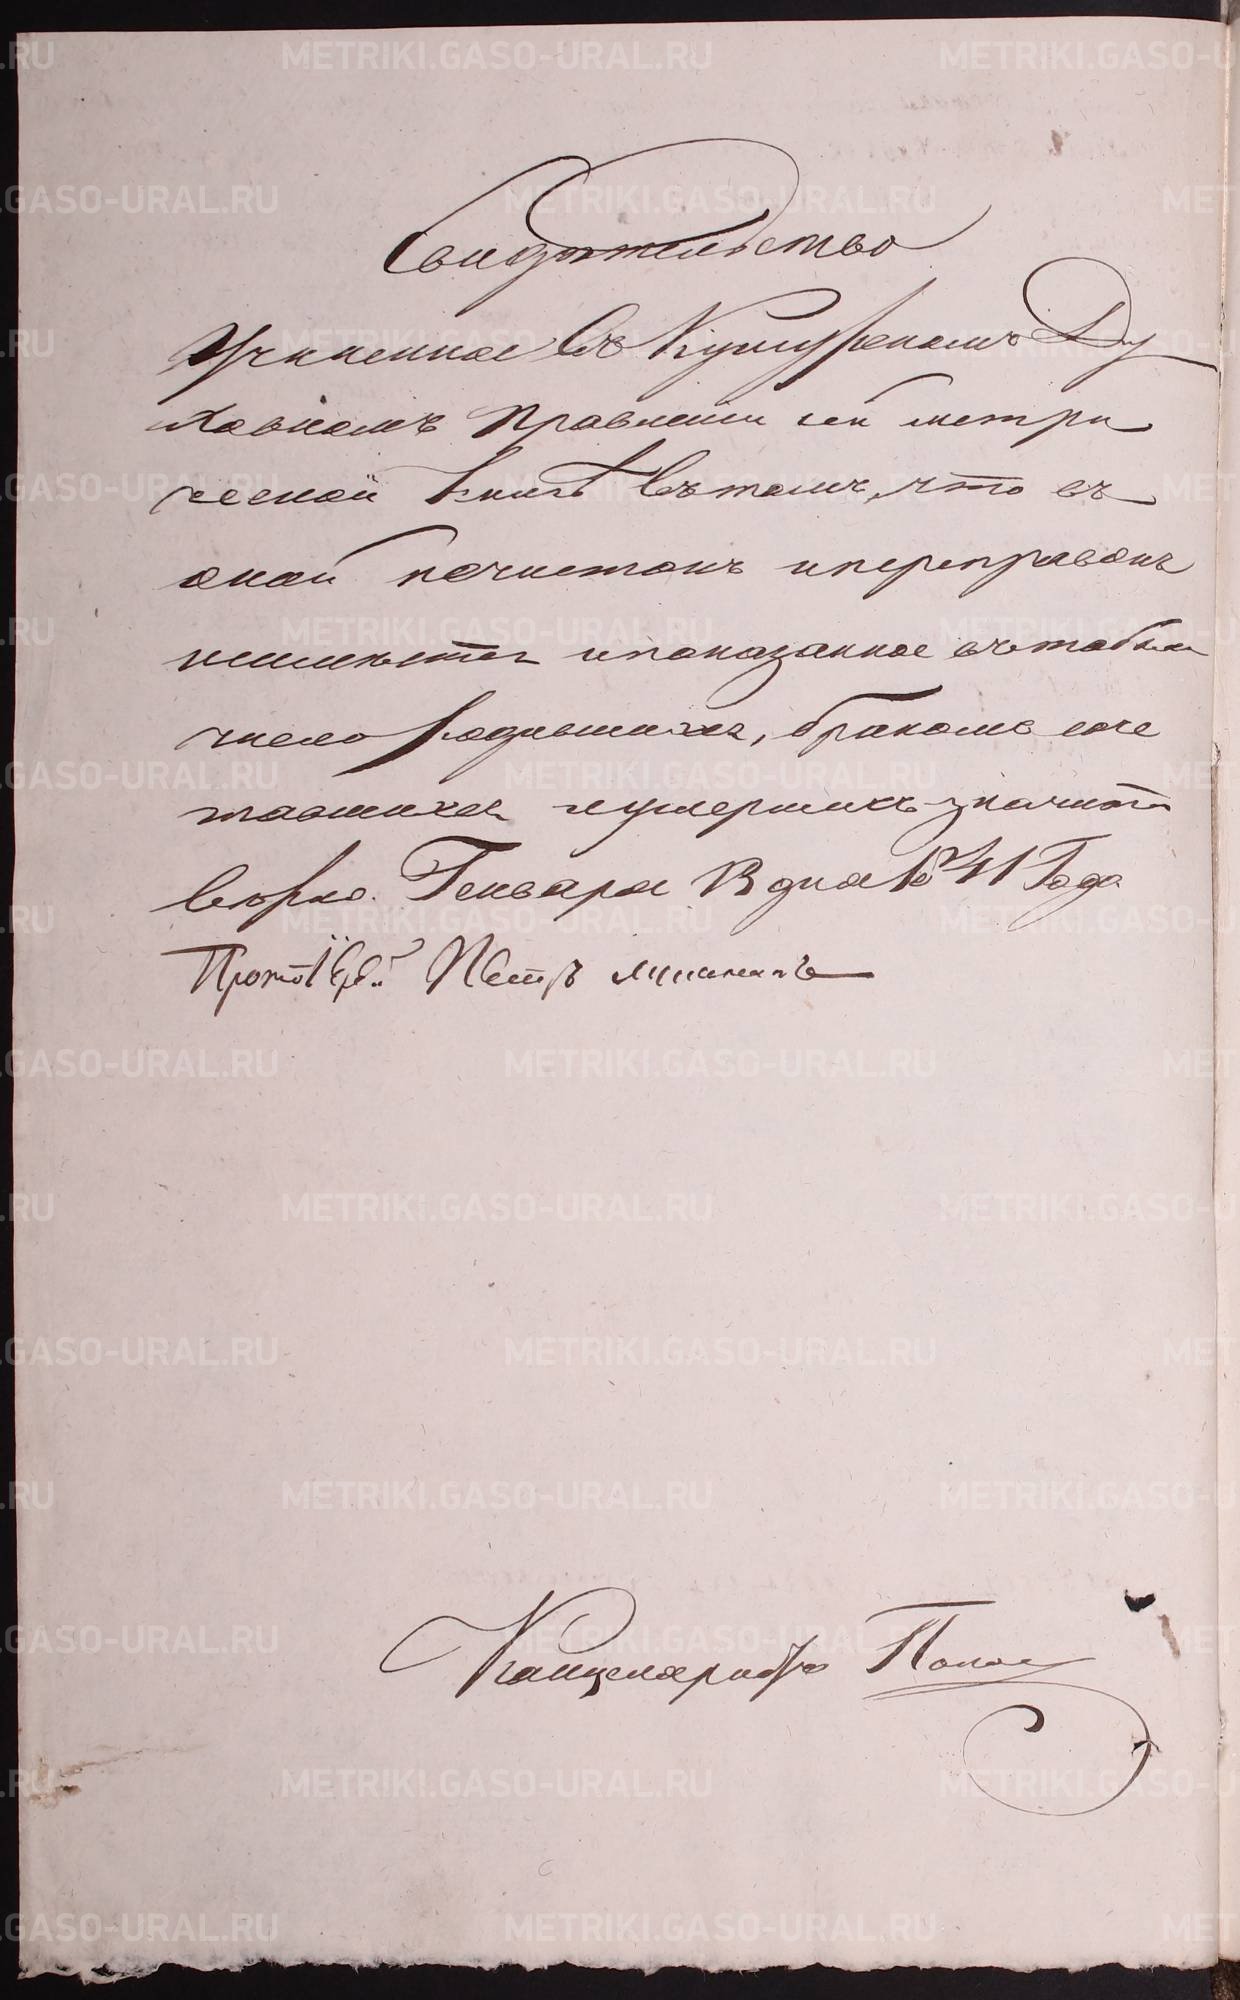 Свидѣтельство
Учиненное въ Кунгурскомъ Ду
ховномъ Правленіи сей метри
ческой книгѣ въ томъ, что въ
оной почистокъ и переправокъ
неимѣется и показанное въ табели
число родившихся, бракомъ соче
тавшихся и умершихъ значится
верно. Генваря 13 дня 1841 Года
Протоіерей Петръ
Канцеляристъ Попов